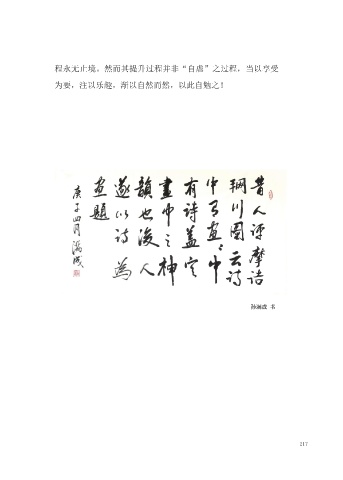 程永无止境。然而其提升过程并非“自虐”之过程，当以享受
为要，注以乐趣，渐以自然而然，以此自勉之！
昔人评摩诘
辋川图云诗
中有画画中
有诗盖定
画中之神
韵也后人
遂以诗为
画题
庚子四月
217